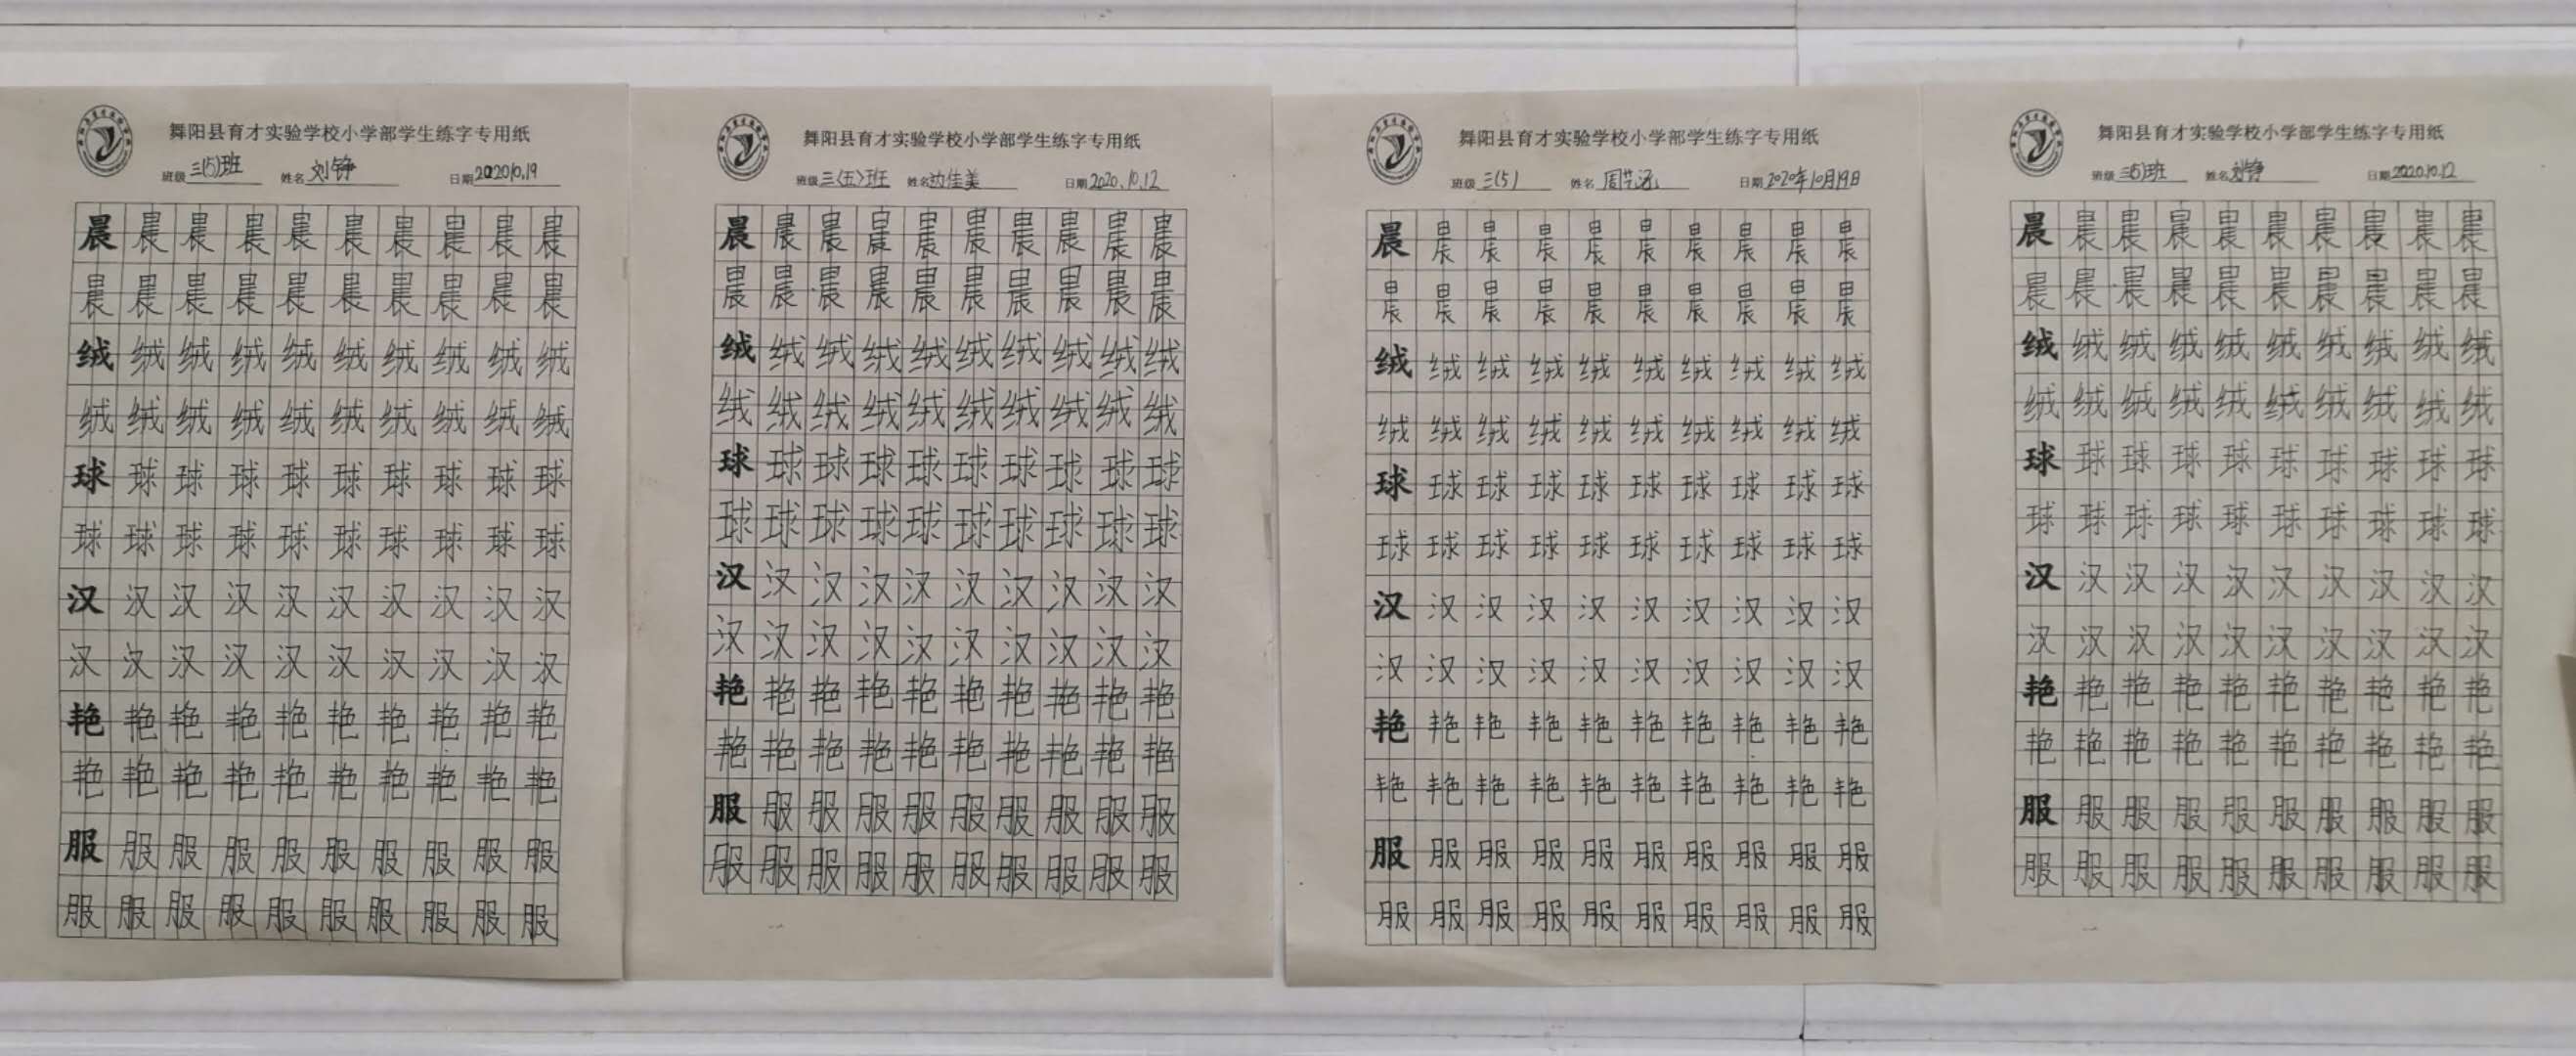 舞阳县育才实验学校小学部学生练字专用纸
班级 三(5)班 姓名 刘铮 日期 2020.10.19
晨晨晨晨晨晨晨晨晨晨
晨晨晨晨晨晨晨晨晨晨
绒绒绒绒绒绒绒绒绒绒
绒绒绒绒绒绒绒绒绒绒
球球球球球球球球球球
球球球球球球球球球球
汉汉汉汉汉汉汉汉汉汉
汉汉汉汉汉汉汉汉汉汉
艳艳艳艳艳艳艳艳艳艳
艳艳艳艳艳艳艳艳艳艳
服服服服服服服服服服
服服服服服服服服服服
舞阳县育才实验学校小学部学生练字专用纸
班级 三〈五〉班 姓名 边佳美 日期 2020.10.12
晨晨晨晨晨晨晨晨晨晨
晨晨晨晨晨晨晨晨晨晨
绒绒绒绒绒绒绒绒绒绒
绒绒绒绒绒绒绒绒绒绒
球球球球球球球球球球
球球球球球球球球球球
汉汉汉汉汉汉汉汉汉汉
汉汉汉汉汉汉汉汉汉汉
艳艳艳艳艳艳艳艳艳艳
艳艳艳艳艳艳艳艳艳艳
服服服服服服服服服服
服服服服服服服服服服
舞阳县育才实验学校小学部学生练字专用纸
班级 三(5) 姓名 周 日期 2020年10月19日
晨晨晨晨晨晨晨晨晨晨
晨晨晨晨晨晨晨晨晨晨
绒绒绒绒绒绒绒绒绒绒
绒绒绒绒绒绒绒绒绒绒
球球球球球球球球球球
球球球球球球球球球球
汉汉汉汉汉汉汉汉汉汉
汉汉汉汉汉汉汉汉汉汉
艳艳艳艳艳艳艳艳艳艳
艳艳艳艳艳艳艳艳艳艳
服服服服服服服服服服
服服服服服服服服服服
舞阳县育才实验学校小学部学生练字专用纸
班级 三(5)班 姓名 刘铮 日期 2020.10.12
晨晨晨晨晨晨晨晨晨晨
晨晨晨晨晨晨晨晨晨晨
绒绒绒绒绒绒绒绒绒绒
绒绒绒绒绒绒绒绒绒绒
球球球球球球球球球球
球球球球球球球球球球
汉汉汉汉汉汉汉汉汉汉
汉汉汉汉汉汉汉汉汉汉
艳艳艳艳艳艳艳艳艳艳
艳艳艳艳艳艳艳艳艳艳
服服服服服服服服服服
服服服服服服服服服服